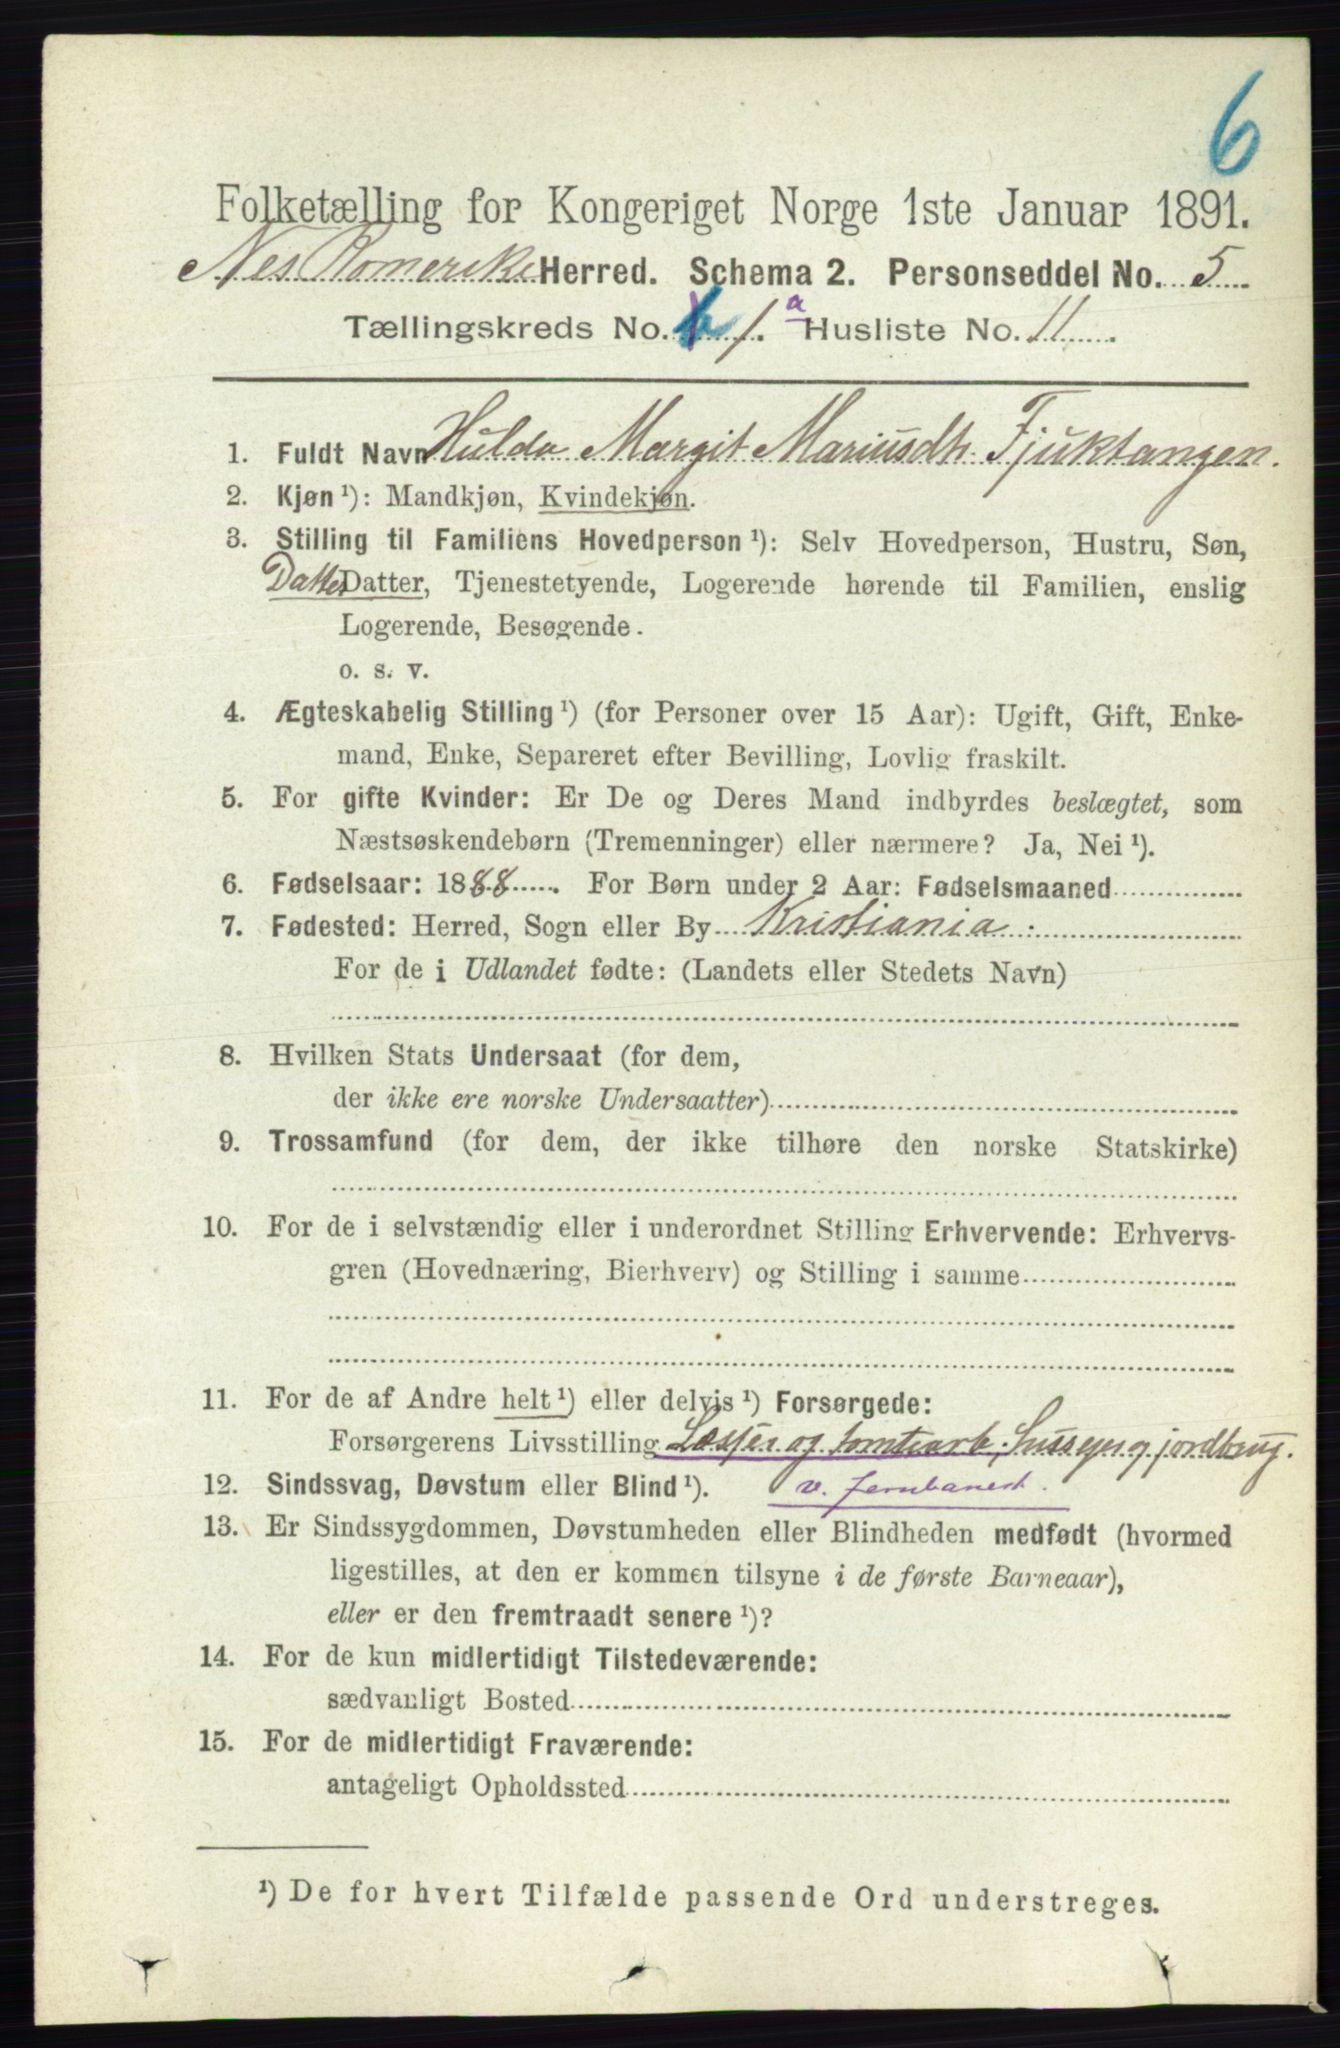 6
Folketælling for Kongeriget Norge 1ste Januar 1891.
Nes Romerike Herred. Schema 2. Personseddel No. 5
Tællingskreds No. 1. a Husliste No. 11
1. Fuldt Navn Hulda Margit Mariusdtr. Fjuktangen.
2. Kjøn ¹): Mandkjøn, Kvindekjøn.
3. Stilling til Familiens Hovedperson ¹): Selv Hovedperson, Hustru, Søn,
Datter Datter, Tjenestetyende, Logerende hørende til Familien, enslig
Logerende, Besøgende.
o. s. v.
4. Ægteskabelig Stilling ¹) (for Personer over 15 Aar): Ugift, Gift, Enke-
mand, Enke, Separeret efter Bevilling, Lovlig fraskilt.
5. For gifte Kvinder: Er De og Deres Mand indbyrdes beslægtet, som
Næstsøskendebørn (Tremenninger) eller nærmere? Ja, Nei ¹).
6. Fødselsaar: 1888. For Børn under 2 Aar: Fødselsmaaned
7. Fødested: Herred, Sogn eller By Kristiania.
For de i Udlandet fødte: (Landets eller Stedets Navn)
8. Hvilken Stats Undersaat (for dem,
der ikke ere norske Undersaatter)
9. Trossamfund (for dem, der ikke tilhøre den norske Statskirke)
10. For de i selvstændig eller i underordnet Stilling Erhvervende: Erhvervs-
gren (Hovednæring, Bierhverv) og Stilling i samme
11. For de af Andre helt ¹) eller delvis ¹) Forsørgede:
Forsørgerens Livsstilling Læsser og tomtearb. Husseier og jordbrug.
12. Sindssvag, Døvstum eller Blind ¹). v. Jernbanen
13. Er Sindssygdommen, Døvstumheden eller Blindheden medfødt (hvormed
ligestilles, at den er kommen tilsyne i de første Barneaar),
eller er den fremtraadt senere ¹)?
14. For de kun midlertidigt Tilstedeværende:
sædvanligt Bosted
15. For de midlertidigt Fraværende:
antageligt Opholdssted
¹) De for hvert Tilfælde passende Ord understreges.